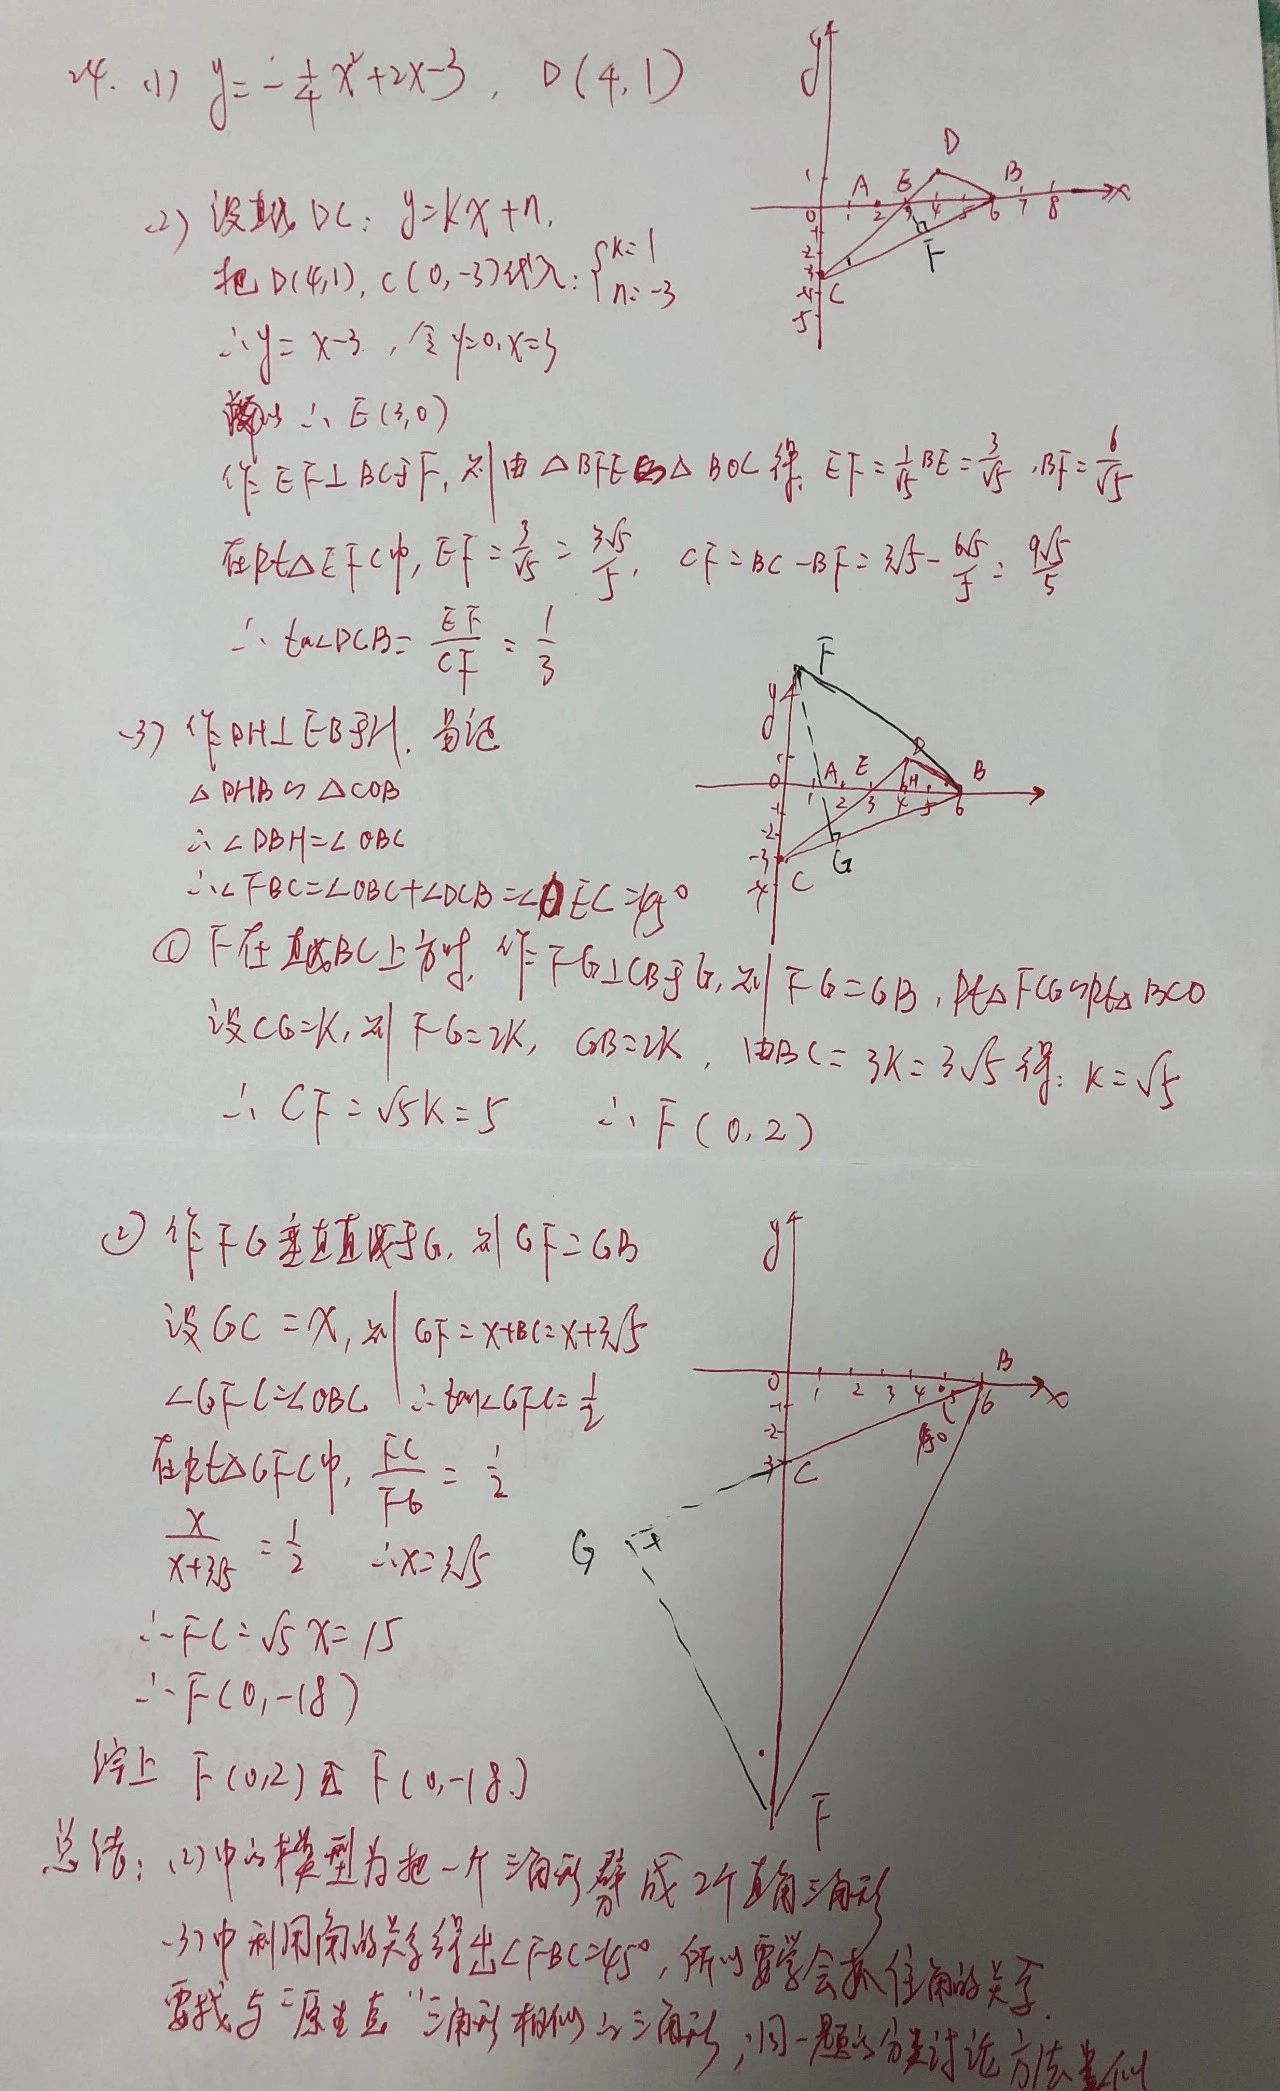 24. (1) y=-1/4x²+2x-3, D(4,1)
(2) 设直线DC: y=kx+n,
把D(4,1), C(0,-3)代入: {k=1 n=-3
∴y=x-3, 令y=0,x=3
∴E(3,0)
作EF⊥BC于F, 则由△BFE∽△BOC得, EF=1/√5BE=3/√5, BF=6/√5
在Rt△EFC中, EF=3/√5=3√5/5, CF=BC-BF=3√5-6√5/5=9√5/5
∴tan∠DCB=EF/CF=1/3
(3) 作DH⊥EB于H. 易证
△DHB∽△COB
∴∠DBH=∠OBC
∴∠FBC=∠OBC+∠DCB=∠OEC=45°
① F在直线BC上方时, 作FG⊥CB于G, 则FG=GB, Rt△FCG∽Rt△BCO
设CG=K, 则FG=2K, GB=2K, 由BC=3K=3√5得: K=√5
∴CF=√5K=5 ∴F(0,2)
② 作FG垂直直线于G, 则GF=GB
设GC=x, 则GF=x+BC=x+3√5
∠GFC=∠OBC ∴tan∠GFC=1/2
在Rt△GFC中, FC/FG=1/2
x/x+3√5=1/2 ∴x=3√5
∴FC=√5x=15
∴F(0,-18)
综上 F(0,2)或F(0,-18)
总结: (2)中的模型为把一个三角形劈成2个直角三角形
(3)中利用角的关系得出∠FBC=45°, 所以要学会抓住角的关系.
要找与"原生直"三角形相似的三角形, 同一题的分类讨论方法类似
y
D
A E B
1
0 1 2 3 4 5 6 7 8 x
-1
-2
-3
-4 C
-5
F
F
y
D
A E B
0 1 2 3 4 H 5 6
-1
-2
-3
-4 C
G
y
B
0 1 2 3 4 5 6 x
-1
-2
-3 C
45°
G
F